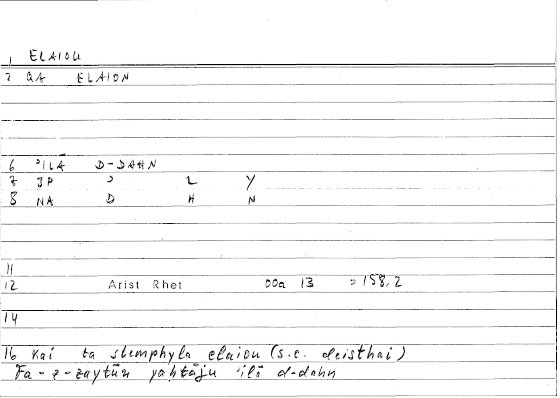 1 ELAIOU
2 QA ELAION
6 ʾILĀ D-DAHN
7 JP ʾ L Y
8 NA D H N
11
12 Arist Rhet 00a 13 = 158,2
14
16 Kai ta stemphyla elaiou (s.c. deisthai)
Fa-z-zaytūn yaḥtāju ʾilā d-dahn